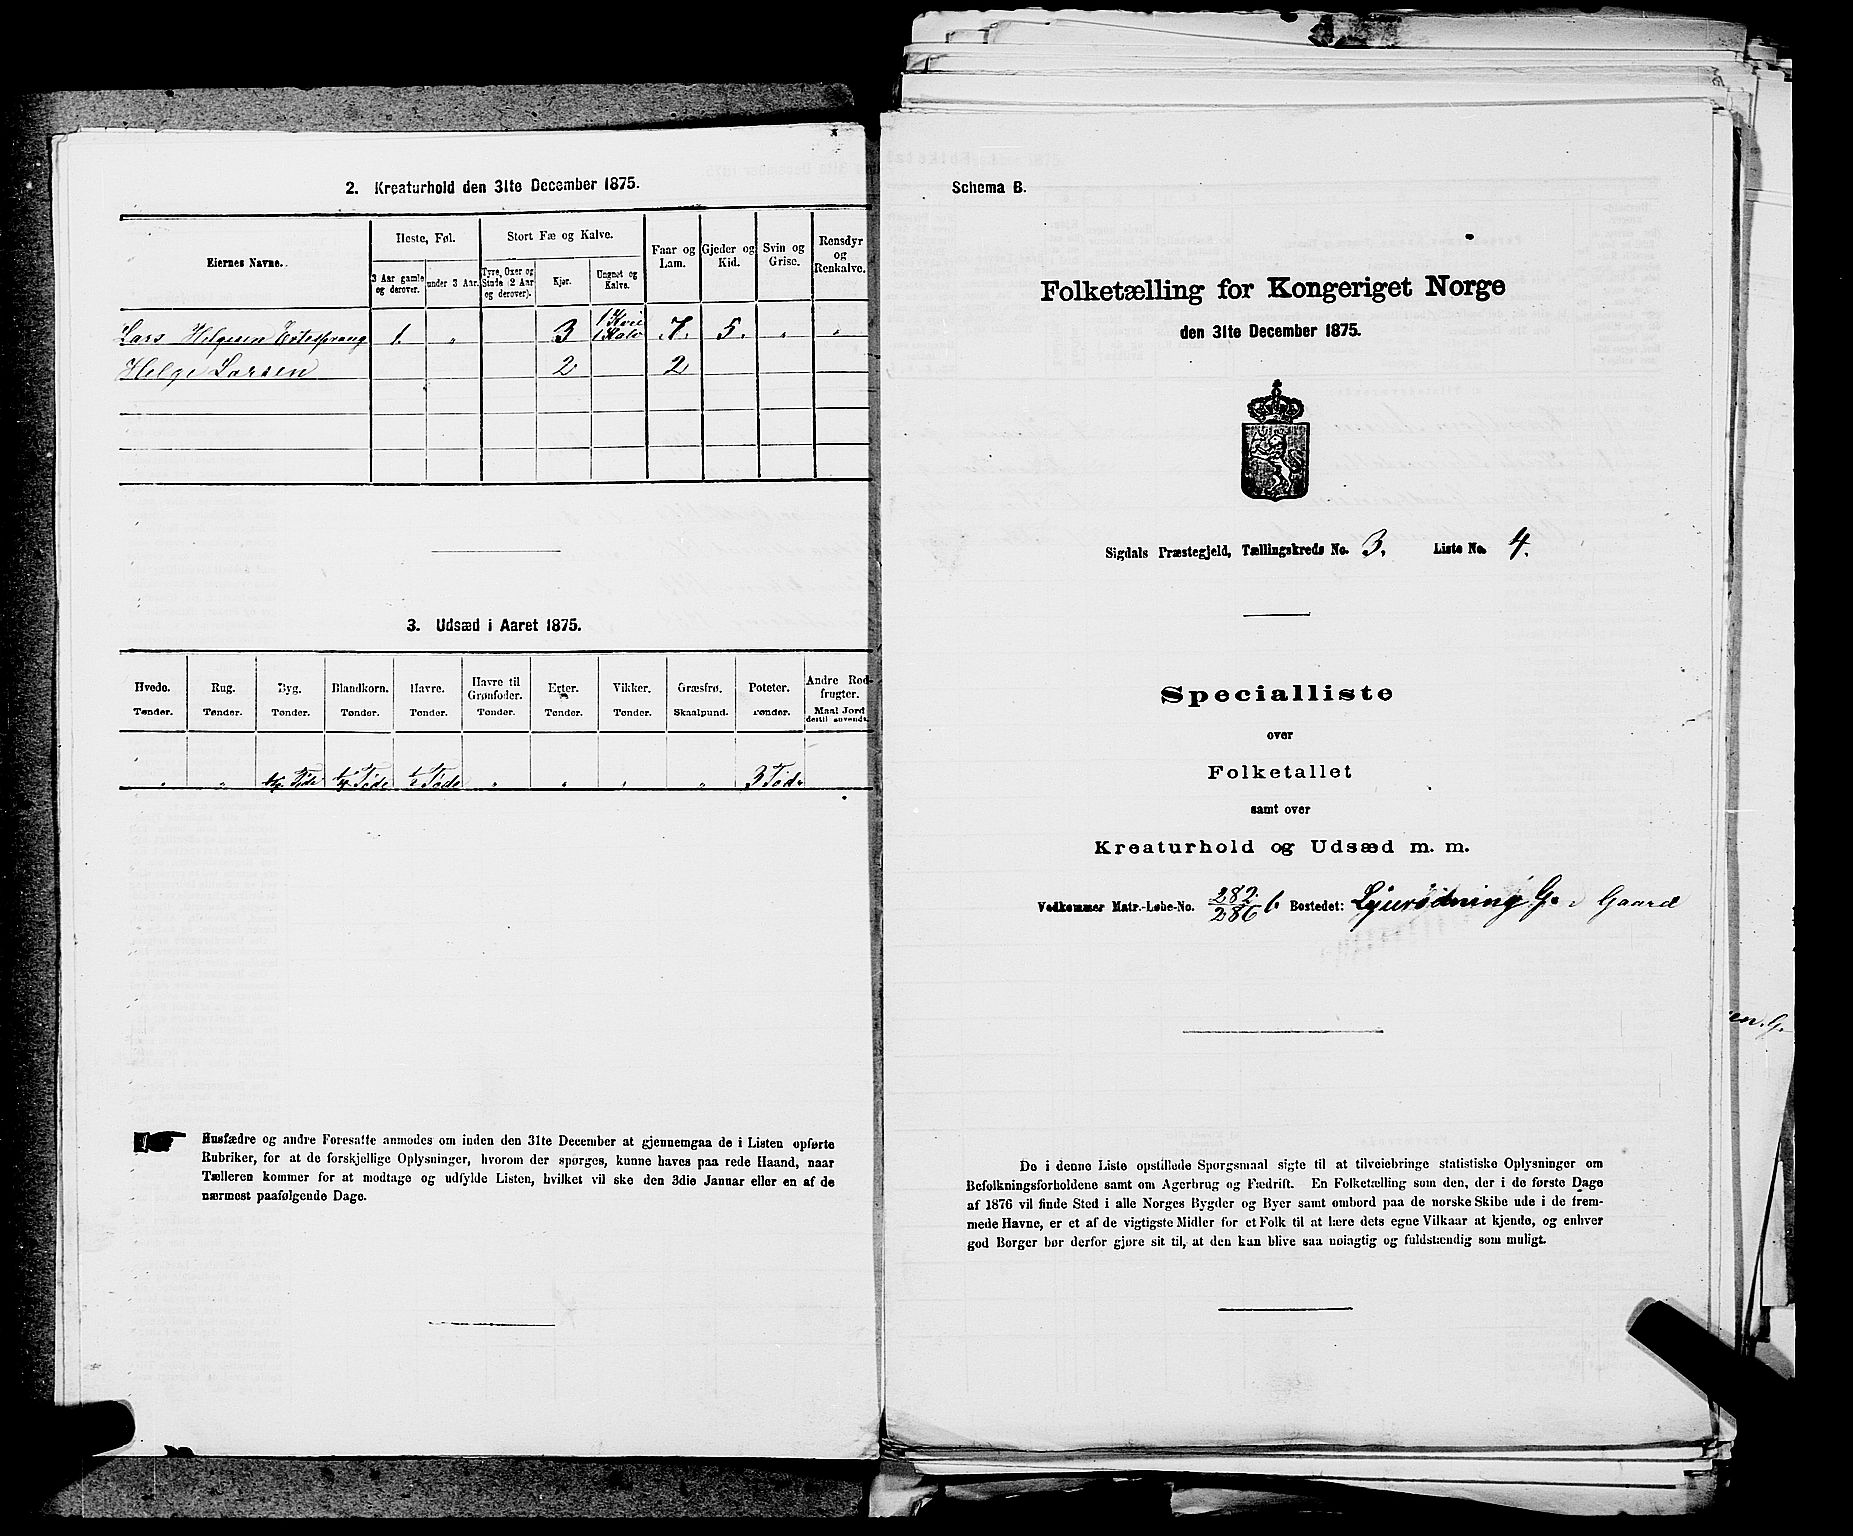 2. Kreaturhold den 31te December 1875.
Eiernes Navne.
Heste, Føl.
Stort Fæ og Kalve.
Faar og Lam.
Gjeder og Kid.
Svin og Grise.
Rensdyr og Renkalve.
3 Aar gamle og derover.
under 3 Aar.
Tyre, Oxer og Stude (2 Aar og derover).
Kjør.
Ungnet og Kalve.
Lars Helgesen 1. " 3 1 Kvie 1 Kalv 7. 5. " "
Helge Larsen 2 2
3. Udsæd i Aaret 1875.
Hvede. Rug. Byg. Blandkorn. Havre. Havre til Grønfoder. Erter. Vikker. Græsfrø. Poteter. Andre Rodfrugter.
Tønder. Tønder. Tønder. Tønder. Tønder. Tønder. Tønder. Tønder. Skaalpund. Tønder. Maal Jord dertil anvendt.
" " Tøde Tøde ½ Tøde " " " " 3 Tød.
Husfædre og andre Foresatte anmodes om inden den 31te December at gjennemgaa de i Listen opførte
Rubriker, for at de forskjellige Oplysninger, hvorom der spørges, kunne haves paa rede Haand, naar
Tælleren kommer for at modtage og udfylde Listen, hvilket vil ske den 3die Januar eller en af de
nærmest paafølgende Dage.
Schema B.
Folketælling for Kongeriget Norge
den 31te December 1875.
Sigdals Præstegjeld, Tællingskreds No. 3. Liste No. 4.
Specialliste
over
Folketallet
samt over
Kreaturhold og Udsæd m. m.
Vedkommer Matr.-Løbe-No. 282/286 b Bostedet: G. Gaard
De i denne Liste opstillede Spørgsmaal sigte til at tilveiebringe statistiske Oplysninger om
Befolkningsforholdene samt om Agerbrug og Fædrift. En Folketælling som den, der i de første Dage
af 1876 vil finde Sted i alle Norges Bygder og Byer samt ombord paa de norske Skibe ude i de frem-
mede Havne, er et af de vigtigste Midler for et Folk til at lære dets egne Vilkaar at kjende, og enhver
god Borger bør derfor gjøre sit til, at den kan blive saa nøiagtig og fuldstændig som muligt.